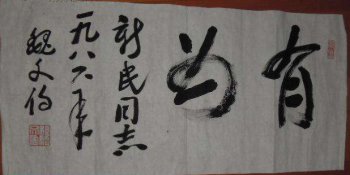 有为
新民同志
一九八六年
魏文伯